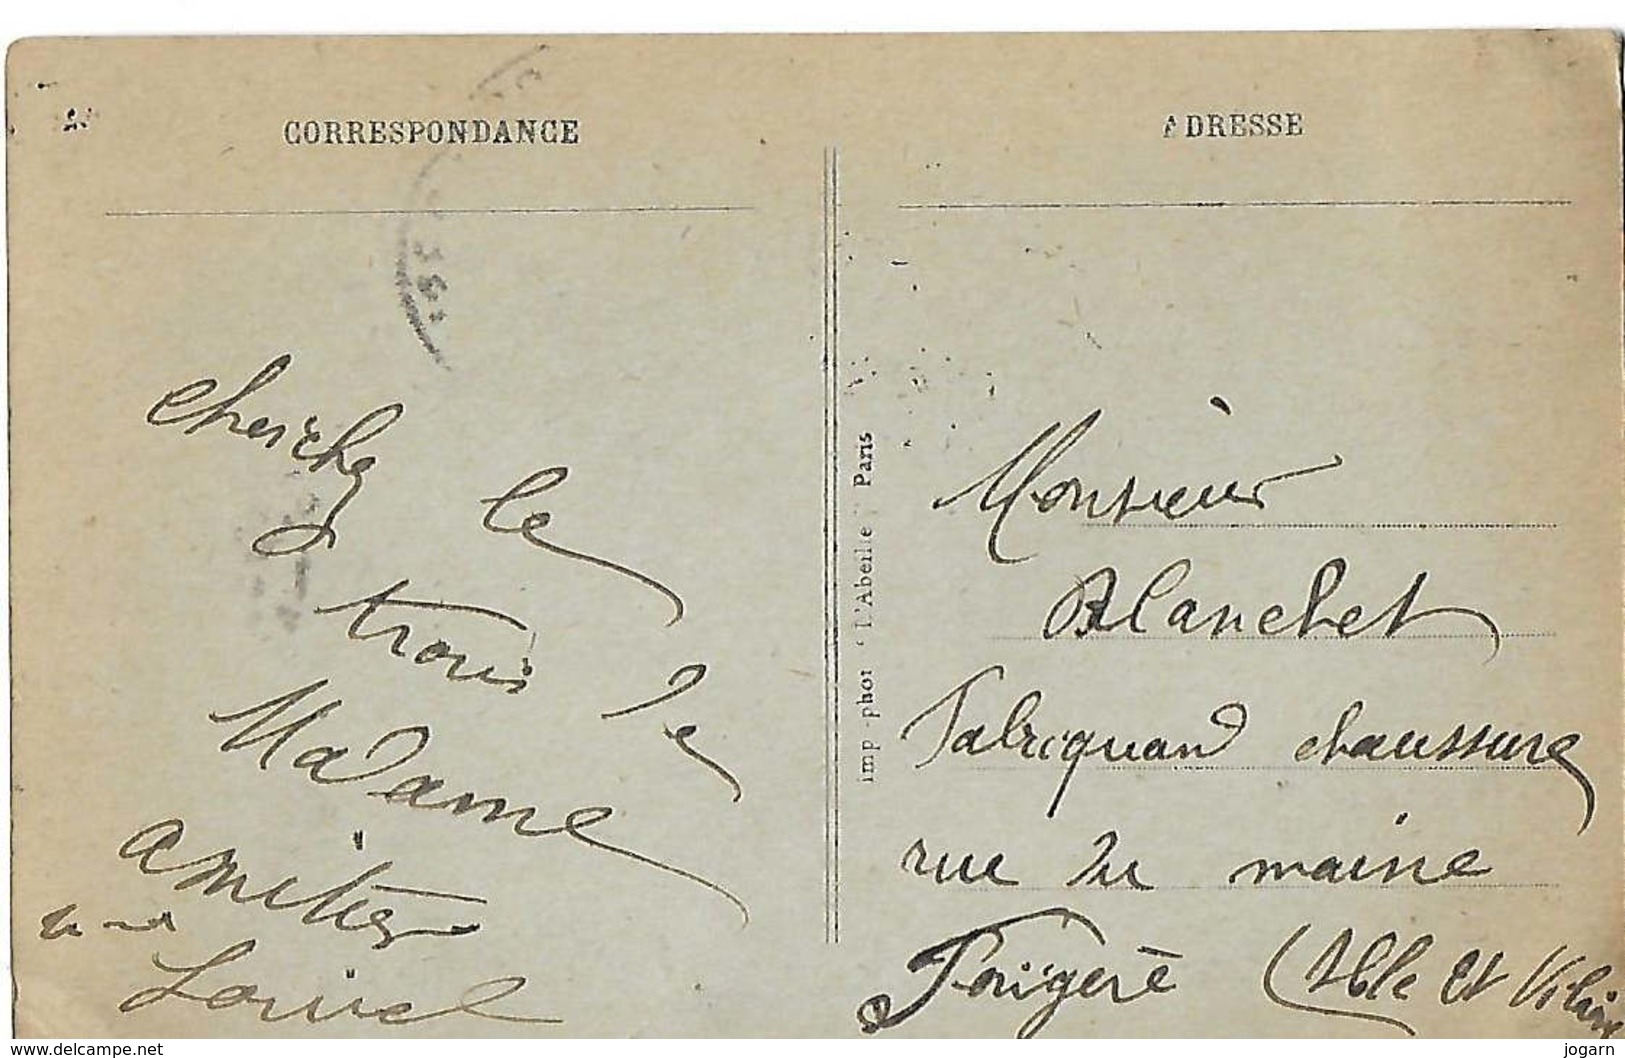 CORRESPONDANCE
cherchez le
trou de
Madame
amitiés
Louvel
imp-phot "L'Abeille" Paris
ADRESSE
Monsieur
Blanchet
Fabriquand chaussure
rue du maine
Fougère (Ille et Vilaine
www.delcampe.net
jogarn